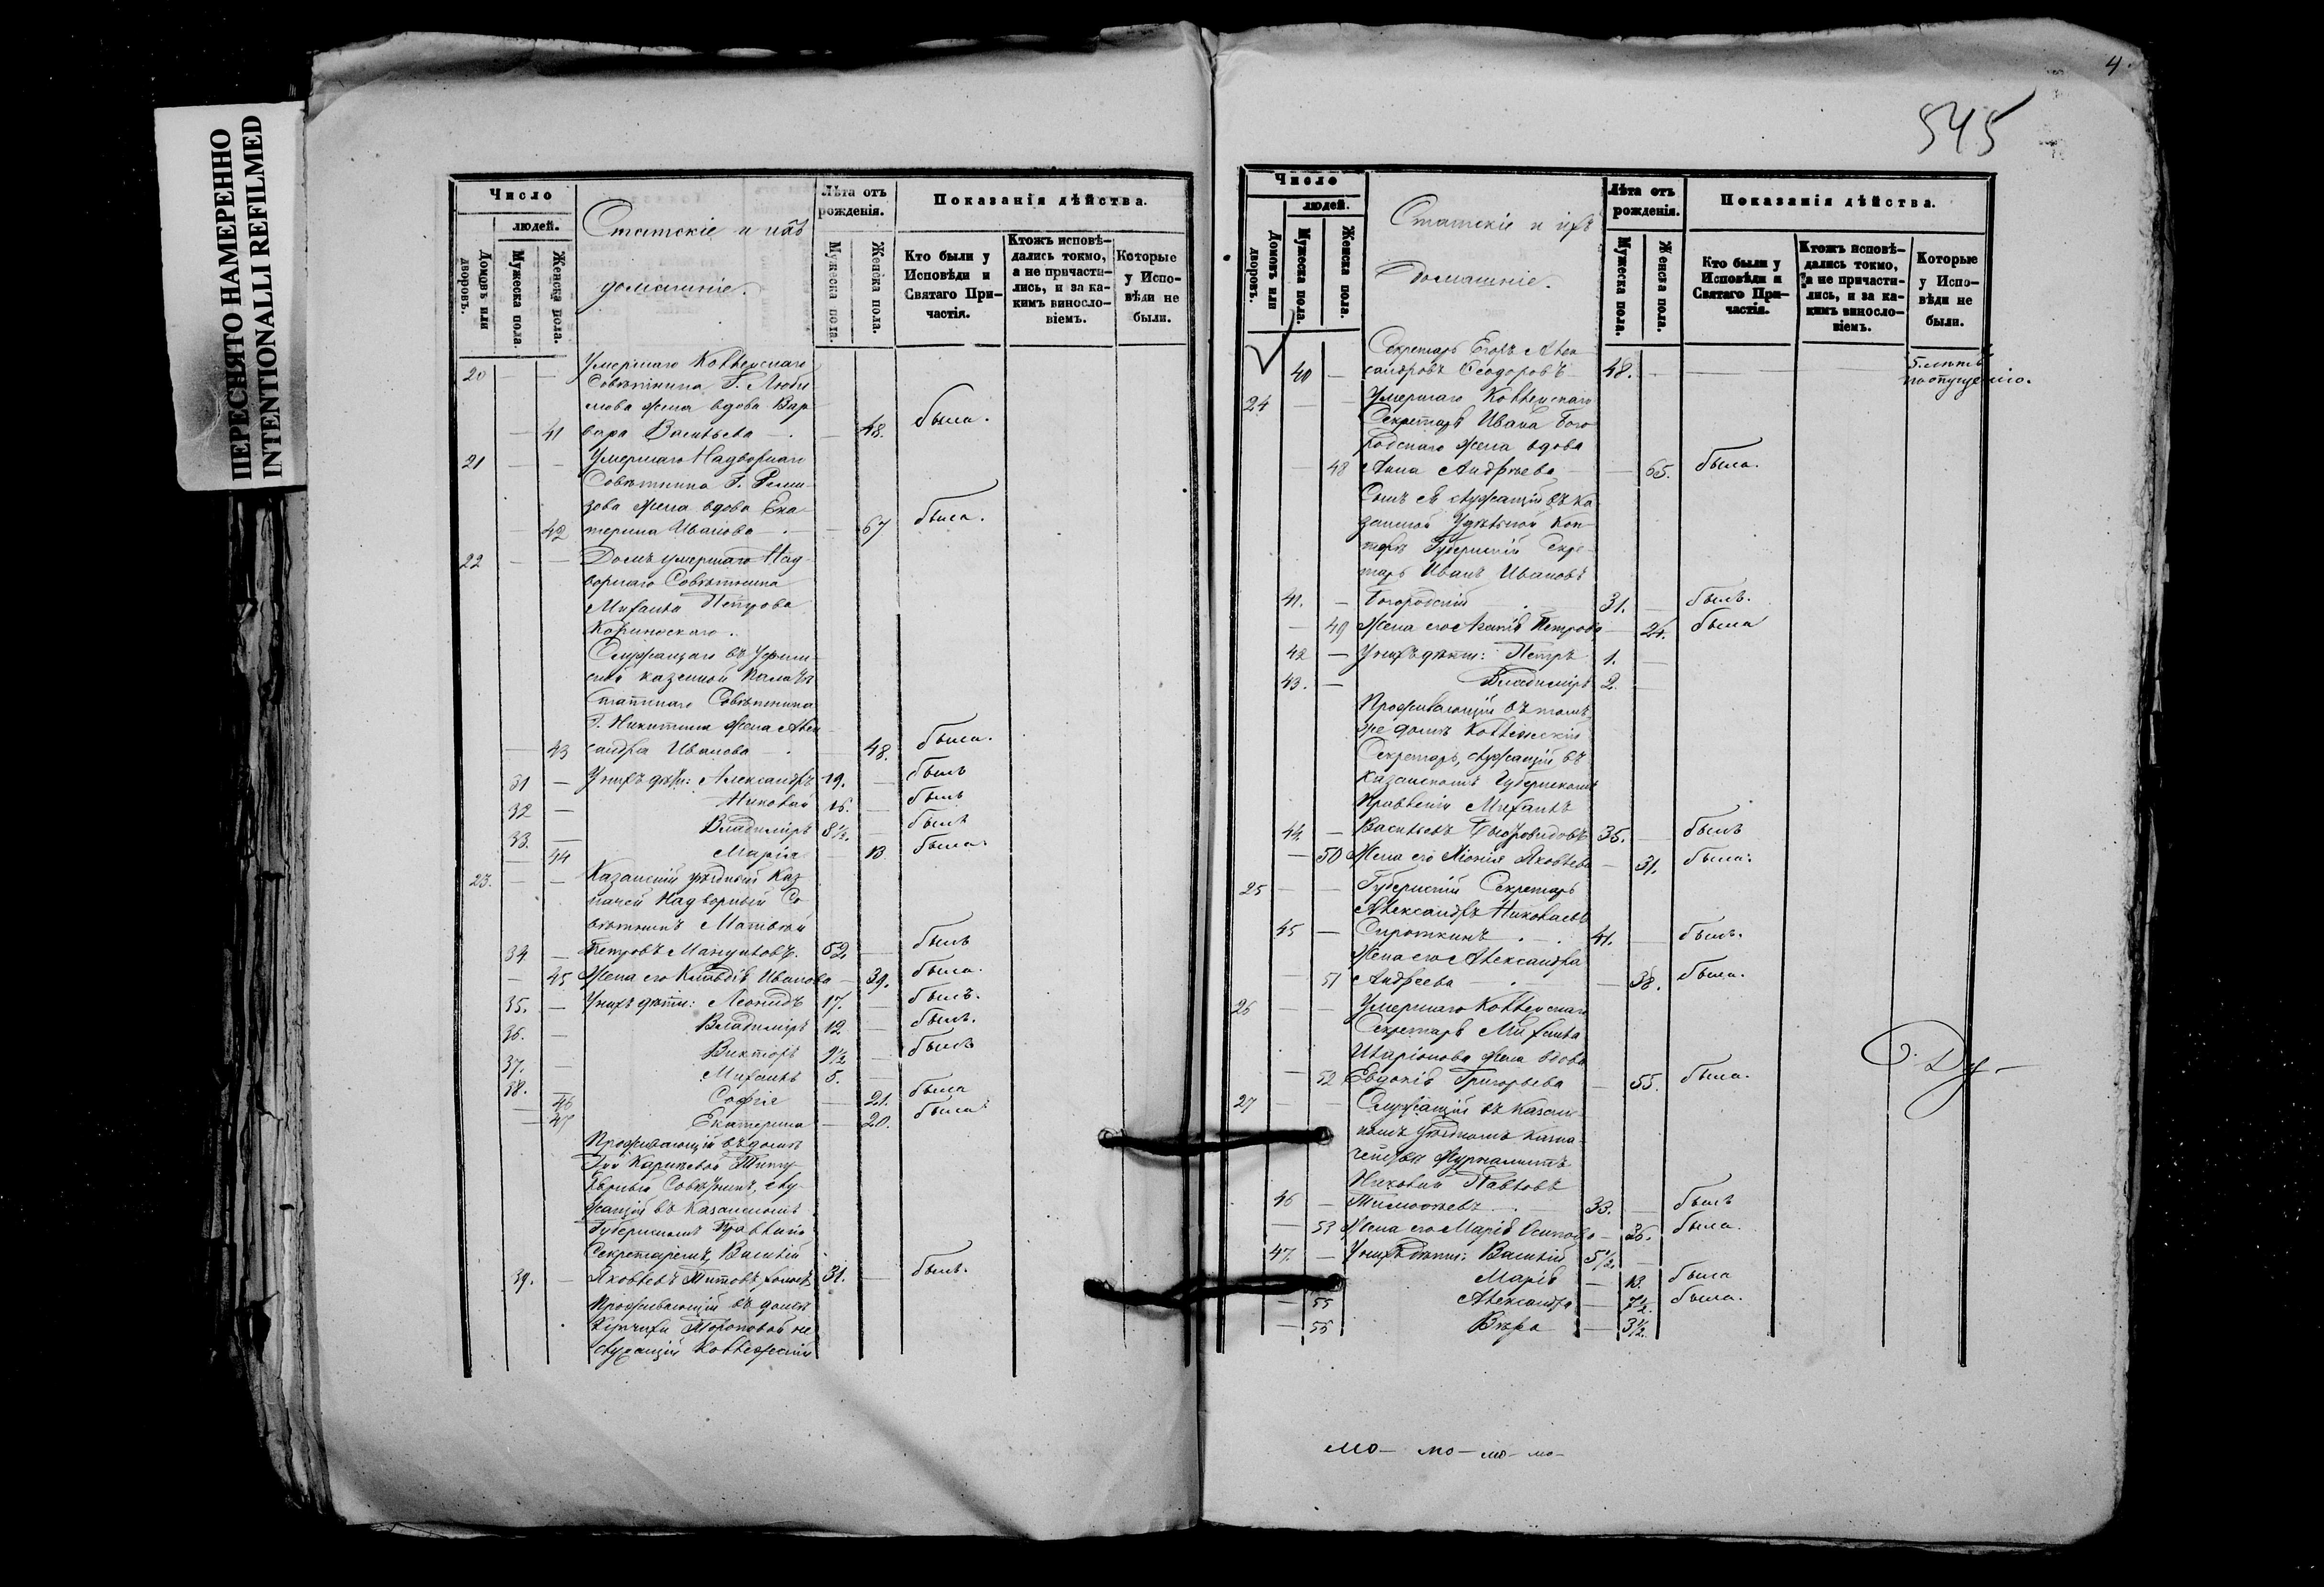 ПЕРЕСНЯТО НАМЕРЕННО
INTENTIONALLI REFILMED
Число
людей.
Домовъ или дворовъ.
Мужеска пола.
Женска пола.
Статскіе и ихъ
домашніе.
Лѣта отъ рожденія.
Мужеска пола.
Женска пола.
Показанія дѣйства.
Кто были у Исповѣди и Святаго Причастія.
Ктожъ исповѣдались токмо, а не причастились, и за какимъ винословіемъ.
Которые у Исповѣди не были.
20 — — Умершаго Коллежскаго
Совѣтника Г. Люби
мова жена вдова Вар
— 41 вара Васильева — 48. была.
21 — — Умершаго Надворнаго
Совѣтника Г. Реми-
зова жена вдова Ека
— 42 терина Иванова — 67 была.
22 — — Домъ умершаго Над-
ворнаго Совѣтника
Михаила Петрова
Служащаго въ Уфим-
ской казенной Палатѣ
Статскаго Совѣтника
Г. Никитина жена Алек
— 43 сандра Иванова — 48. была.
31 — У нихъ дѣти: Александръ 19. — былъ
32 — Николай 15. — былъ
33. — Владиміръ 8½. — былъ
— 44 Марія — 13. была.
23. — — Казанскій уѣздный Каз
начей Надворный Со
вѣтникъ Матвѣй
34 — Петровъ Мануиловъ. 52. — былъ
— 45 Жена его Клавдія Иванова — 39. была.
35. — У нихъ дѣти: Леонидъ 17. — былъ.
36. — Владиміръ 12 — былъ.
37. — Викторъ 9½ — былъ
38. — Михаилъ 5. —
— 46 Софія — 21. была
— 47 Екатерина — 20. была
Проживающій въ домѣ
Титу
лярный Совѣтникъ, слу-
жащій въ Казанскомъ
Губернскомъ Правленіи
Секретаремъ, Василій
39. — Яковлевъ Титовъ, холостъ 31. — былъ.
Проживающій въ домѣ
Купчихи Тороповой не
служащій Коллежскій
4.
545
Число
людей.
Домовъ или дворовъ.
Мужеска пола.
Женска пола.
Статскіе и ихъ
домашніе.
Лѣта отъ рожденія.
Мужеска пола.
Женска пола.
Показанія дѣйства.
Кто были у Исповѣди и Святаго Причастія.
Ктожъ исповѣдались токмо, а не причастились, и за какимъ винословіемъ.
Которые у Исповѣди не были.
Секретарь Егоръ Алек
40 — сандровъ Ѳеодоровъ 48. — — — 5 лѣтъ
по опущенію.
24 — — Умершаго Коллежскаго
Секретаря Ивана Бого
родскаго жена вдова
— 48 Анна Андреева — 65. была.
Сынъ ея служащій въ Ка
занской Удѣльной Кон-
торѣ Губернскій Секре-
тарь Иванъ Ивановъ
41. — Богородскій 31. — былъ.
— 49 Жена его Петрова — 24. была
42 — У нихъ дѣти: Петръ 1. —
43. — Владиміръ 2. —
Проживающій въ томъ
же домѣ Коллежскій
Секретарь, служащій въ
Казанскомъ Губернскомъ
Правленіи Михаилъ
44. — Васильевъ 35. — былъ
— 50 Жена его Яковлева — 31. была.
25 — — Губернскій Секретарь
Александръ Николаевъ
45 — Сироткинъ 41. — былъ.
Жена его Александра
— 51 Андреева — 38. была.
26 — — Умершаго Коллежскаго
Секретаря Михаила
Иларіонова жена вдова
— 52 Евдокія Григорьева — 55. была.
27 — — Служащій въ Казан-
скомъ Уѣздномъ Казна-
чействѣ Журналистъ
Николай Павловъ
46 — Тимоѳеевъ 33. — былъ
— 53 Жена его Марія Осипова — 36. была.
47. — У нихъ дѣти: Василій 5½. —
Марія — 13. была
— 55 Александра — 7½. была.
— 56 Вѣра — 3½.
мо— мо— мо— мо—